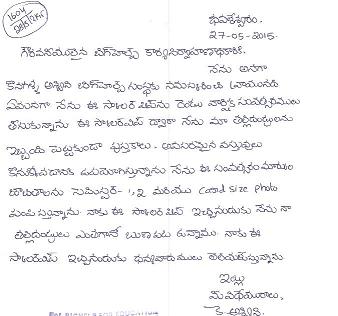 1604
భువనేశ్వరం.
27-05-2015.
గౌరవనీయులైన బిగ్‌హెల్ప్ కార్యనిర్వాహణాధికారికి.
నేను అనగా
కొనగళ్ళ అశ్విని బిగ్‌హెల్ప్ సంస్థకు నమస్కరించి
ఏమనగా నేను ఈ స్కాలర్ షిప్‌ను రెండు వార్షిక సంవత్సరములు
తీసుకున్నాను ఈ స్కాలర్‌షిప్ ద్వారా నేను మా తల్లిదండ్రులను
ఇబ్బంది పెట్టకుండా పుస్తకాలు. అవసరమైన వస్తువులు
కొనుక్కోవడానికి ఉపయోగిస్తున్నాను నేను ఈ సంవత్సరం మార్కుల
జాబితాలను సెమిస్టర్-1,2 మరియు Card size photo
పంపిస్తున్నాను. నాకు ఈ స్కాలర్ షిప్ ఇచ్చినందుకు నేను నా
తల్లిదండ్రులు ఎంతగానో ఋణపడి ఉన్నాము. నాకు ఈ
స్కాలర్‌షిప్ ఇచ్చినందుకు ధన్యవాదములు తెలియజేస్తున్నాను
ఇట్లు
మీ విధేయురాలు,
కె. అశ్విని.